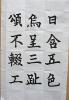 日含五色
烏呈三趾
頌不輟工